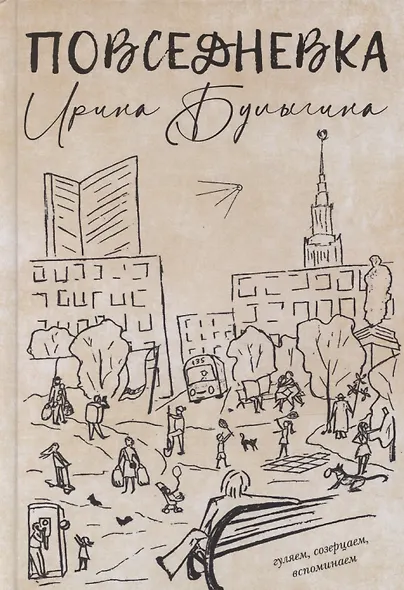 ПОВСЕДНЕВКА
Ирина Булыгина
135
гуляем, созерцаем,
вспоминаем